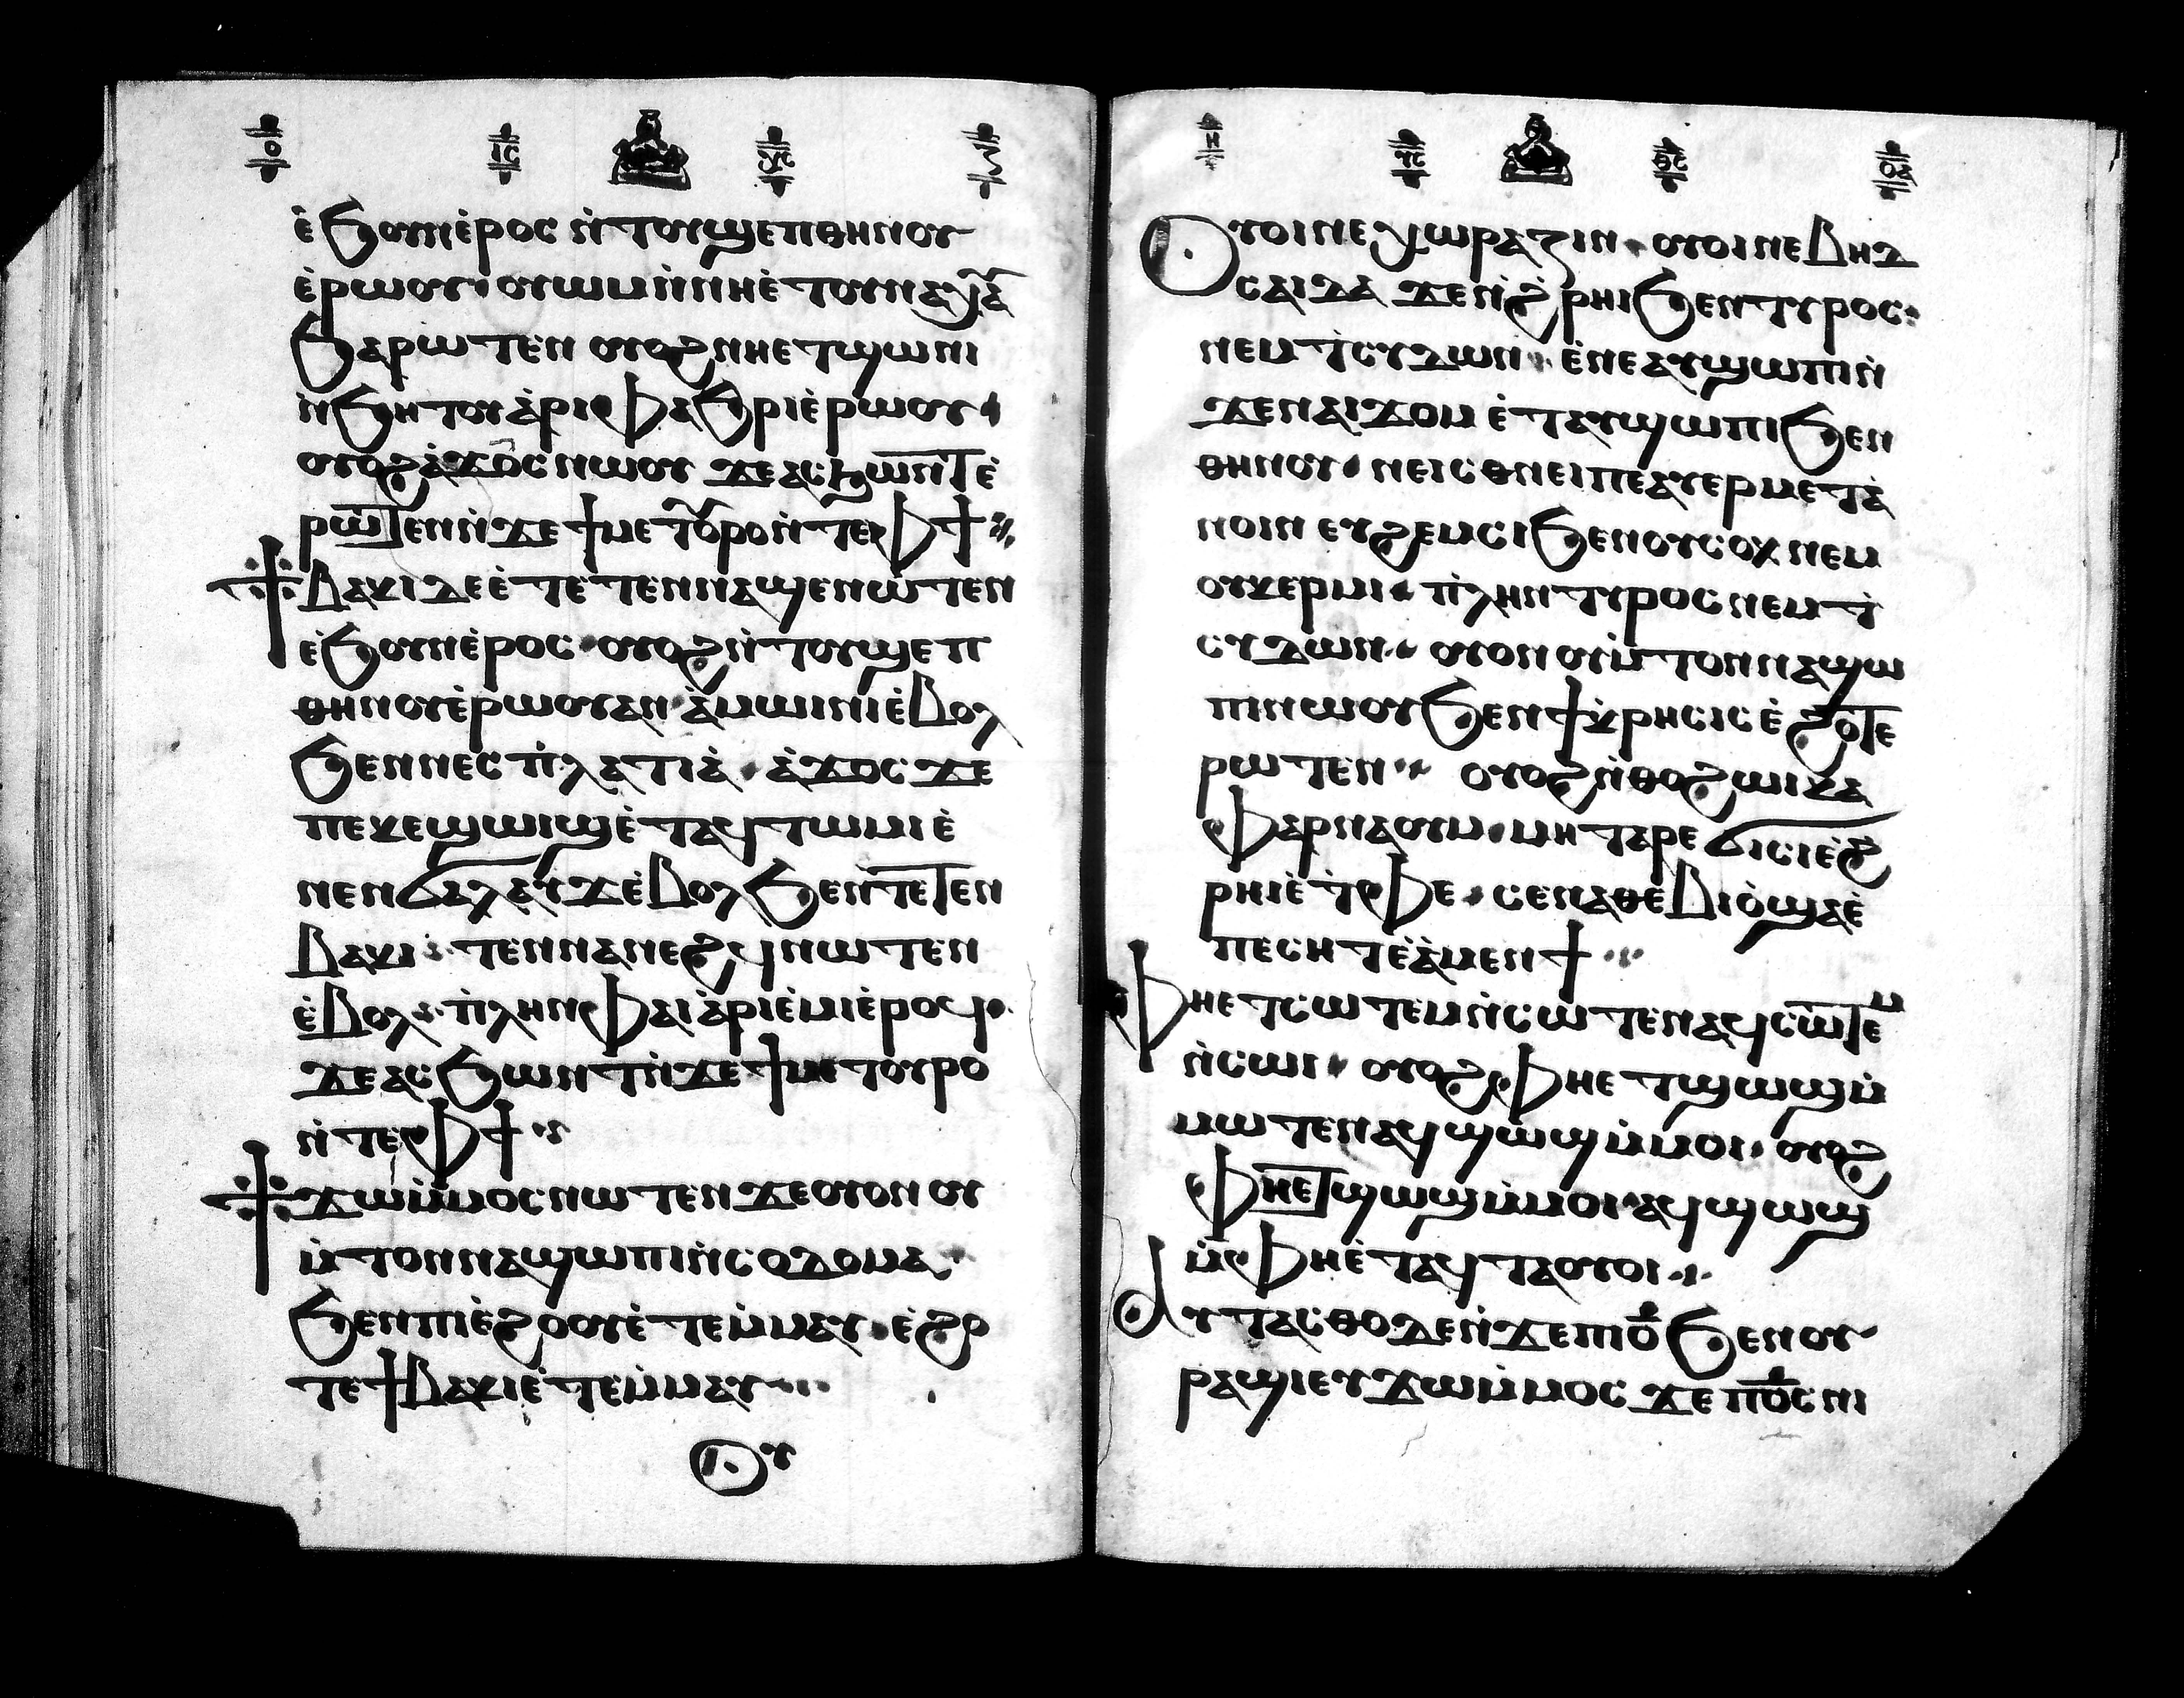 ⲟ ⲓ̅ⲥ̅ ⲩ̅ⲥ̅
ⲉ̀ϧⲟⲩⲛⲉ̀ⲣⲟⲥ ⲛ̀ⲧⲟⲩϣⲉⲡⲑⲏⲛⲟⲩ
ⲉ̀ⲣⲱⲟⲩ· ⲟⲩⲱⲙⲛ̀ⲛⲏⲉ̀ⲧⲟⲩⲛⲁⲭⲁ
ϧⲁⲣⲱⲧⲉⲛ ⲟⲩⲟϩⲛⲏⲉⲧϣⲱⲛⲓ
ⲛ̀ϧⲏⲧⲟⲩⲁ̀ⲣⲓⲫⲁϧⲣⲓⲉ̀ⲣⲱⲟⲩ·
ⲟⲩⲟϩⲁ̀ϫⲟⲥⲛⲱⲟⲩ ϫⲉⲁⲥϧⲱⲛⲧⲉ̀
ⲣⲱⲧⲉⲛⲛ̀ϫⲉϯⲙⲉⲧⲟⲩⲣⲟⲛ̀ⲧⲉⲫϯ
ⲃⲁⲕⲓⲇⲉⲉ̀ⲧⲉⲧⲉⲛⲛⲁϣⲉⲛⲱⲧⲉⲛ
ⲉ̀ϧⲟⲩⲛⲉ̀ⲣⲟⲥ· ⲟⲩⲟϩⲛ̀ⲧⲟⲩϣⲉⲡ
ⲑⲏⲛⲟⲩⲉ̀ⲣⲱⲟⲩⲁⲛ· ⲁ̀ⲙⲱⲓⲛⲓⲉ̀ⲃⲟⲗ
ϧⲉⲛⲛⲉⲥⲡ̀ⲗⲁⲧⲓⲁ̀· ⲁ̀ϫⲟⲥϫⲉ
ⲡⲉⲕⲉϣⲱⲓϣⲉ̀ⲧⲁϥⲧⲱⲙⲓⲉ̀
ⲛⲉⲛϭⲁⲗⲁⲩϫⲉ̀ⲃⲟⲗϧⲉⲛⲧⲉⲧⲉⲛ
ⲃⲁⲕⲓ· ⲧⲉⲛⲛⲁⲛⲉϩϥⲛⲱⲧⲉⲛ
ⲉ̀ⲃⲟⲗ· ⲡ̀ⲗⲏⲛⲫⲁⲓⲁ̀ⲣⲓⲉ̀ⲙⲓⲉ̀ⲣⲟϥ·
ϫⲉⲁⲥϧⲱⲛⲧⲛ̀ϫⲉϯⲙⲉⲧⲟⲩⲣⲟ
ⲛ̀ⲧⲉⲫϯ
ϫⲱⲙ̀ⲙⲟⲥⲛⲱⲧⲉⲛϫⲉⲟⲩⲟⲛⲟⲩ
ⲙ̀ⲧⲟⲛⲛⲁϣⲱⲡⲓⲛ̀ⲥⲟⲇⲟⲙⲁ·
ϧⲉⲛⲡⲓⲉ̀ϩⲟⲟⲩⲉ̀ⲧⲉⲙ̀ⲙⲁⲩ· ⲉ̀ϩⲣ
ⲧⲉϯⲃⲁⲕⲓⲉ̀ⲧⲉⲙ̀ⲙⲁⲩ
ⲟⲩ
ⲏ ⲩ̅ⲥ̅ ⲑ̅ⲥ̅ ⲟⲁ
ⲟⲩⲟⲓⲛⲉⲭⲱⲣⲁⲍⲓⲛ· ⲟⲩⲟⲓⲛⲉⲃⲏⲇ
ⲥⲁⲓⲇⲁ ϫⲉⲛ̀ϩ̀ⲣⲏⲓϧⲉⲛⲧⲩⲣⲟⲥ·
ⲛⲉⲙⲧ̀ⲥⲩⲇⲱⲛ· ⲉ̀ⲛⲉⲁⲩϣⲱⲡⲓⲛ̀
ϫⲉⲛⲁⲓϫⲟⲙ ⲉ̀ⲧⲁⲩϣⲱⲡⲓϧⲉⲛ
ⲑⲏⲛⲟⲩ· ⲛⲉⲓⲥⲑⲛⲉⲓⲡⲉⲁⲩⲉⲣⲙⲉⲧⲁ̀
ⲛⲟⲓⲛ ⲉⲩϩⲉⲙⲥⲓϧⲉⲛⲟⲩⲥⲟⲕ ⲛⲉⲙ
ⲟⲩⲕⲉⲣⲙⲓ· ⲡ̀ⲗⲏⲛⲧⲩⲣⲟⲥⲛⲉⲙⲧ̀
ⲥⲩⲇⲱⲛ· ⲟⲩⲟⲛ ⲟⲩⲙ̀ⲧⲟⲛⲛⲁϣⲱ
ⲡⲓⲛⲱⲟⲩϧⲉⲛϯⲕ̀ⲣⲏⲥⲓⲥⲉ̀ϩⲟⲧⲉ
ⲣⲱⲧⲉⲛ· ⲟⲩⲟϩⲛ̀ⲑⲟϩⲱⲓⲕⲁ
ⲫⲁⲣⲛⲁⲟⲩⲙ· ⲙⲏⲧⲁⲣⲉϭⲓⲥⲓⲉ̀ϩ
ⲣⲏⲓⲉ̀ⲧ̀ⲫⲉ· ⲥⲉⲛⲁⲑⲉⲃⲓⲟ̀ϣⲁⲉ̀
ⲡⲉⲥⲏⲧⲉ̀ⲁ̀ⲙⲉⲛϯ
ⲫⲏⲉⲧⲥⲱⲧⲉⲙⲛ̀ⲥⲱⲧⲉⲛⲁϥⲥⲱⲧⲉⲙ
ⲛ̀ⲥⲱⲓ· ⲟⲩⲟϩⲫⲏⲉⲧϣⲱϣⲙ̀
ⲙⲱⲧⲉⲛⲁϥϣⲱϣⲙ̀ⲙⲟⲓ· ⲟⲩⲟϩ
ⲫⲏⲉⲧϣⲱϣⲙ̀ⲙⲟⲓ·ⲁϥϣⲱϣ
ⲙ̀ⲫⲏⲉ̀ⲧⲁϥⲧⲁⲟⲩⲟⲓ
ⲁⲩⲧⲁⲥⲑⲟⲇⲉⲛ̀ϫⲉⲡⲓⲟ̅ϧⲉⲛⲟⲩ
ⲣⲁϣⲓⲉⲩϫⲱⲙ̀ⲙⲟⲥ ϫⲉⲡⲟ̅ⲥⲛⲓ